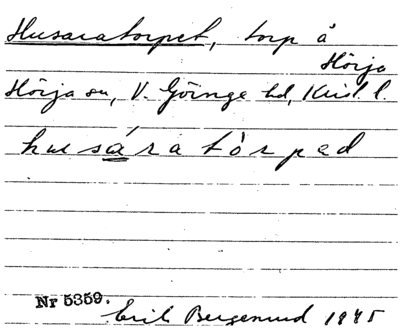 Husaratorpet, torp å
Hörja
Hörja sn, V. Göinge hd, Krist. l.
husáratòrped
Nr 5359.
Erik Bergenrud 1945